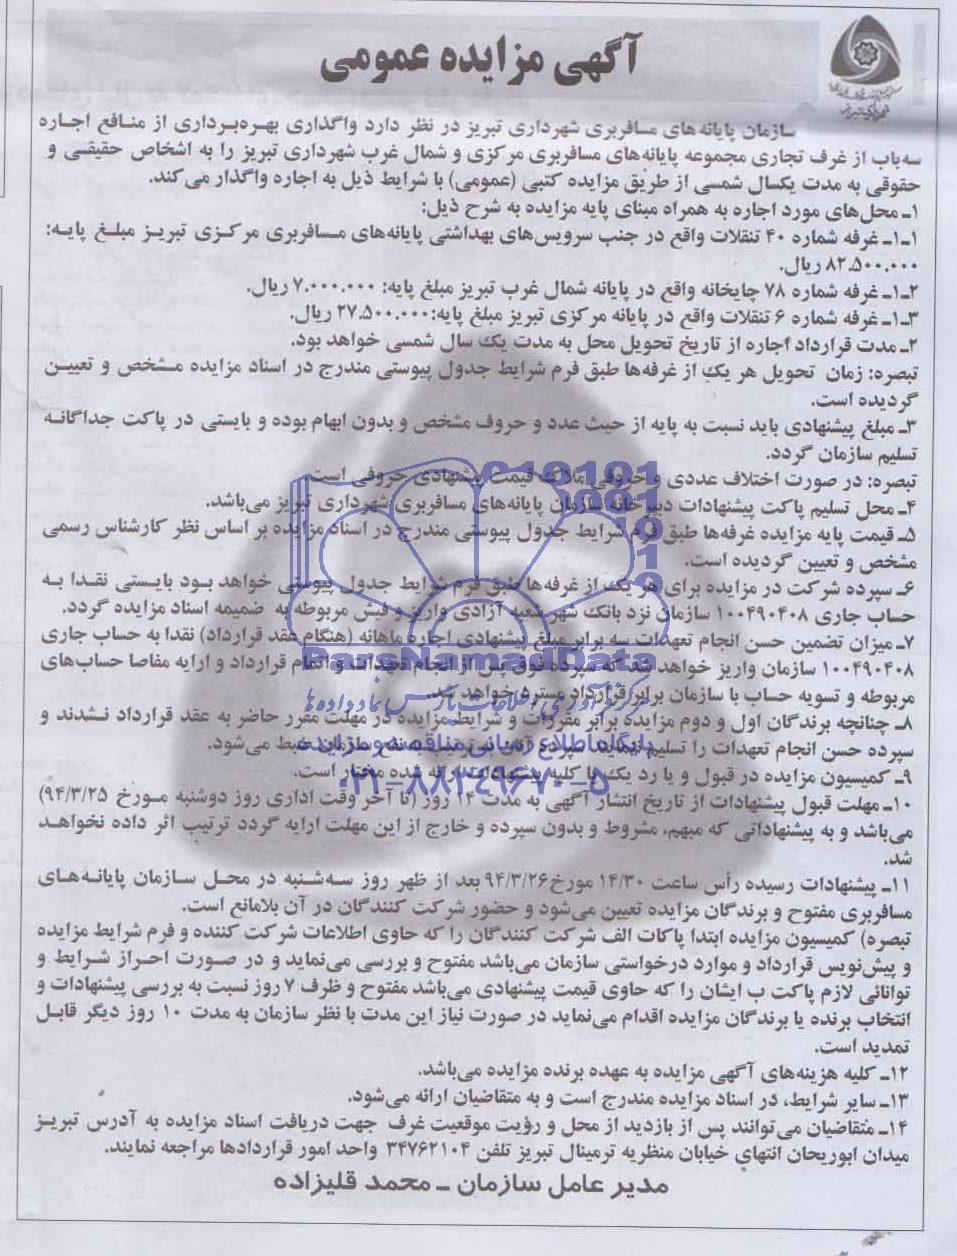 آگهی مزایده عمومی
سازمان پایانه‌های مسافربری شهرداری تبریز در نظر دارد واگذاری بهره‌برداری از منافع اجاره
سه‌باب از غرف تجاری مجموعه پایانه‌های مسافربری مرکزی و شمال غرب شهرداری تبریز را به اشخاص حقیقی و
حقوقی به مدت یکسال شمسی از طریق مزایده کتبی (عمومی) با شرایط ذیل به اجاره واگذار می‌کند.
۱ـ محل‌های مورد اجاره به همراه مبنای پایه مزایده به شرح ذیل:
۱ـ۱ـ غرفه شماره ۴۰ تنقلات واقع در جنب سرویس‌های بهداشتی پایانه‌های مسافربری مرکزی تبریز مبلغ پایه:
۸۲.۵۰۰.۰۰۰ ریال.
۲ـ۱ـ غرفه شماره ۷۸ چایخانه واقع در پایانه شمال غرب تبریز مبلغ پایه: ۷.۰۰۰.۰۰۰ ریال.
۳ـ۱ـ غرفه شماره ۶ تنقلات واقع در پایانه مرکزی تبریز مبلغ پایه:۲۷.۵۰۰.۰۰۰ ریال.
۲ـ مدت قرارداد اجاره از تاریخ تحویل محل به مدت یک سال شمسی خواهد بود.
تبصره: زمان تحویل هر یک از غرفه‌ها طبق فرم شرایط جدول پیوستی مندرج در اسناد مزایده مشخص و تعیین
گردیده است.
۳ـ مبلغ پیشنهادی باید نسبت به پایه از حیث عدد و حروف مشخص و بدون ابهام بوده و بایستی در پاکت جداگانه
تسلیم سازمان گردد.
تبصره: در صورت اختلاف عددی و حروفی ملاک قیمت پیشنهادی حروفی است.
۴ـ محل تسلیم پاکت پیشنهادات دبیرخانه سازمان پایانه‌های مسافربری شهرداری تبریز می‌باشد.
۵ـ قیمت پایه مزایده غرفه‌ها طبق فرم شرایط جدول پیوستی مندرج در اسناد مزایده بر اساس نظر کارشناس رسمی
مشخص و تعیین گردیده است.
۶ـ سپرده شرکت در مزایده برای هر یک از غرفه‌ها طبق فرم شرایط جدول پیوستی خواهد بود بایستی نقدا به
حساب جاری ۱۰۰۴۹۰۴۰۸ سازمان نزد بانک شهر شعبه آزادی واریز و فیش مربوطه به ضمیمه اسناد مزایده گردد.
۷ـ میزان تضمین حسن انجام تعهدات سه برابر مبلغ پیشنهادی اجاره ماهانه (هنگام عقد قرارداد) نقدا به حساب جاری
۱۰۰۴۹۰۴۰۸ سازمان واریز خواهد شد که سپرده فوق پس از انجام تعهدات و اتمام قرارداد و ارایه مفاصا حساب‌های
مربوطه و تسویه حساب با سازمان برابر قرارداد مسترد خواهد شد.
۸ـ چنانچه برندگان اول و دوم مزایده برابر مقررات و شرایط مزایده در مهلت مقرر حاضر به عقد قرارداد نشدند و
سپرده حسن انجام تعهدات را تسلیم ننمایند سپرده آنان به ترتیب به نفع سازمان ضبط می‌شود.
۹ـ کمیسیون مزایده در قبول و یا رد یک یا کلیه پیشنهادات ارائه شده مختار است.
۱۰ـ مهلت قبول پیشنهادات از تاریخ انتشار آگهی به مدت ۱۴ روز (تا آخر وقت اداری روز دوشنبه مورخ ۹۴/۳/۲۵)
می‌باشد و به پیشنهاداتی که مبهم، مشروط و بدون سپرده و خارج از این مهلت ارایه گردد ترتیب اثر داده نخواهد
شد.
۱۱ـ پیشنهادات رسیده رأس ساعت ۱۴/۳۰ مورخ ۹۴/۳/۲۶ بعد از ظهر روز سه‌شنبه در محل سازمان پایانه‌های
مسافربری مفتوح و برندگان مزایده تعیین می‌شود و حضور شرکت کنندگان در آن بلامانع است.
تبصره) کمیسیون مزایده ابتدا پاکات الف شرکت کنندگان را که حاوی اطلاعات شرکت کننده و فرم شرایط مزایده
و پیش‌نویس قرارداد و موارد درخواستی سازمان می‌باشد مفتوح و بررسی می‌نماید و در صورت احراز شرایط و
توانائی لازم پاکت ب ایشان را که حاوی قیمت پیشنهادی می‌باشد مفتوح و ظرف ۷ روز نسبت به بررسی پیشنهادات و
انتخاب برنده یا برندگان مزایده اقدام می‌نماید در صورت نیاز این مدت با نظر سازمان به مدت ۱۰ روز دیگر قابل
تمدید است.
۱۲ـ کلیه هزینه‌های آگهی مزایده به عهده برنده مزایده می‌باشد.
۱۳ـ سایر شرایط، در اسناد مزایده مندرج است و به متقاضیان ارائه می‌شود.
۱۴ـ متقاضیان می‌توانند پس از بازدید از محل و رؤیت موقعیت غرف جهت دریافت اسناد مزایده به آدرس تبریز
میدان ابوریحان انتهای خیابان منظریه ترمینال تبریز تلفن ۳۴۷۶۲۱۰۴ واحد امور قراردادها مراجعه نمایند.
مدیر عامل سازمان ـ محمد قلیزاده
ParsNamadData
پایگاه اطلاع رسانی مناقصه و مزایده
۰۲۱-۸۸۳۴۹۶۷۰-۵